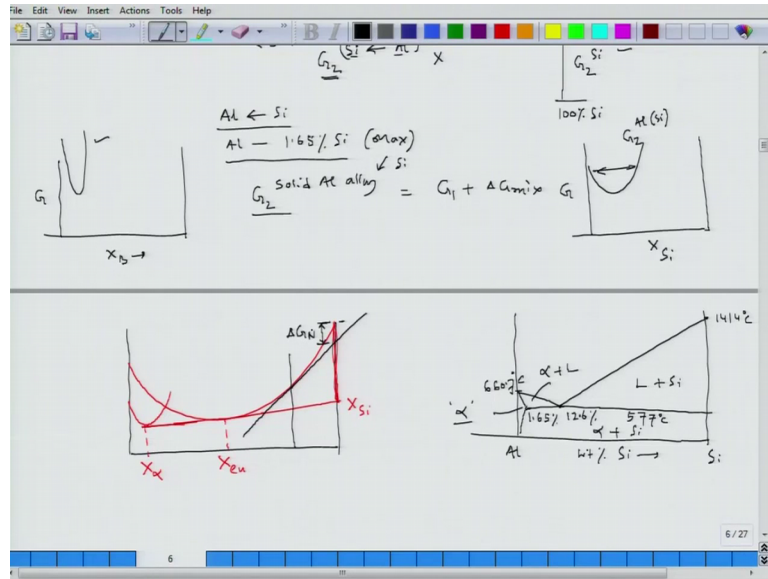 File Edit View Insert Actions Tools Help
G₂ (Si ← Al) X
G₂ Si
100% Si
Al ← Si
Al — 1.65% Si (max)
Si
G₂ Solid Al alloy = G₁ + ΔGmix
G
X_B →
G
G₂ Al(Si)
X Si
ΔG_N
X Si
Xα
X eu
1414°C
660.
°C
α+L
L + Si
'α'
1.65% 12.6% 577°C
α + Si
Al wt % Si → Si
6/27
6